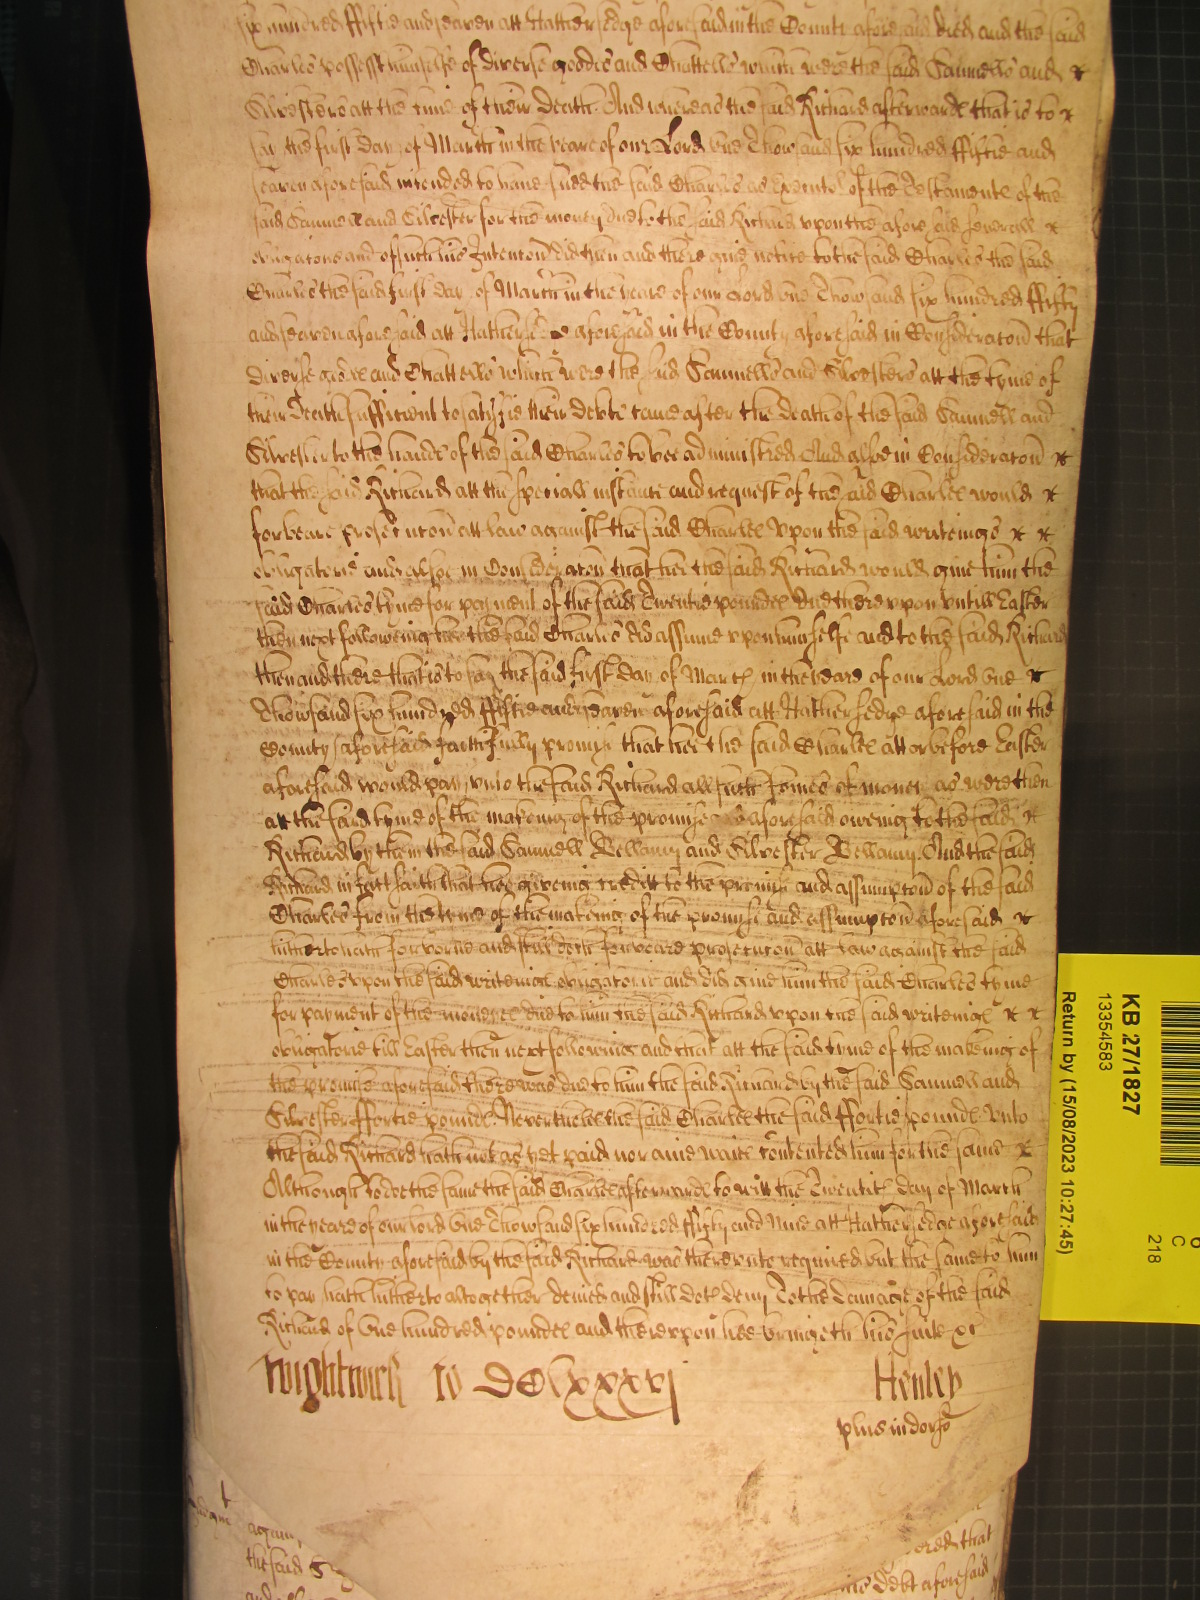 six hundred ffiftie and seaven att Hathersedge aforesaid in the County aforesaid died and the said
Charles possest himselfe of diverse goodes and Chattells which were the said Samuells and
Silvesters att the time of their Death. And whereas the said Richard afterwards that is to
say the first day of March in the yeare of our Lord one Thowsand six hundred ffiftie and
seaven aforesaid intended to have sued the said Charles as Executor of the Testament of the
said Samuell and Silvester for the money due to the said Richard upon the aforesaid severall
obligatorie and of such his Intencon did then and there give notice to the said Charles the said
Charles the said first day of March in the yeare of our Lord one Thowsand six hundred ffifty
and seaven aforesaid att Hathersedge aforesaid in the County aforesaid in Consideracon that
diverse goodes and Chattells which were the said Samuells and Silvesters att the tyme of
their Death sufficient to satisfie their debts came after the death of the said Samuell and
Silvester to the hands of the said Charles to bee administred And alsoe in Consideracon
that the said Richard att the speciall instance and request of the said Charles would
forbeare prosecucon att law against the said Charles upon the said writeings
obligatorie and alsoe in Consideracon that hee the said Richard would give him the
said Charles tyme for payment of the said Twentie poundes due thereupon untill Easter
then next following hee the said Charles did assume upon himselfe and to the said Richard
then and there that is to say the said first day of March in the yeare of our Lord one
Thowsand six hundred ffiftie and seaven aforesaid att Hathersedge aforesaid in the
County aforesaid faithfully promise that hee the said Charles att or before Easter
aforesaid would pay unto the said Richard all such somes of money as were then
att the said tyme of the makeing of the promise as aforesaid oweing to the said
Richard by them the said Samuell Bellamy and Silvester Bellamy. And the said
Richard in fact saith that hee giveing creditt to the promise and assumpcon of the said
Charles from the tyme of the makeing of the promise and assumpcon aforesaid
hitherto hath forborne and still doth forbeare prosecucon att Law against the said
Charles upon the said writeings obligatorie and did give him the said Charles tyme
for payment of the moneyes due to him the said Richard upon the said writeings
obligatorie till Easter then next following and that att the said tyme of the makeing of
the promise aforesaid there was due to him the said Richard by the said Samuell and
Silvester ffortie pounds. Neverthelesse the said Charles the said ffortie pounds unto
the said Richard hath not as yet paid nor anie waies contented him for the same
Although to doe the same the said Charles afterwards to witt the Twentith day of March
in the yeare of our Lord one Thowsand six hundred ffifty and Nine att Hathersedge aforesaid
in the County aforesaid by the said Richard was thereunto required but the same to him
to pay hath hitherto altogether denied and still doth deny To the damage of the said
Richard of one hundred poundes and thereupon hee bringeth his suite &c
Wightwick Ro DClxxxxj Henley
plus in dorso
Judgmt again
the said
ered that
debt aforesaid
KB 27/1827
13354583
Return by (15/08/2023 10:27:45)
C
218